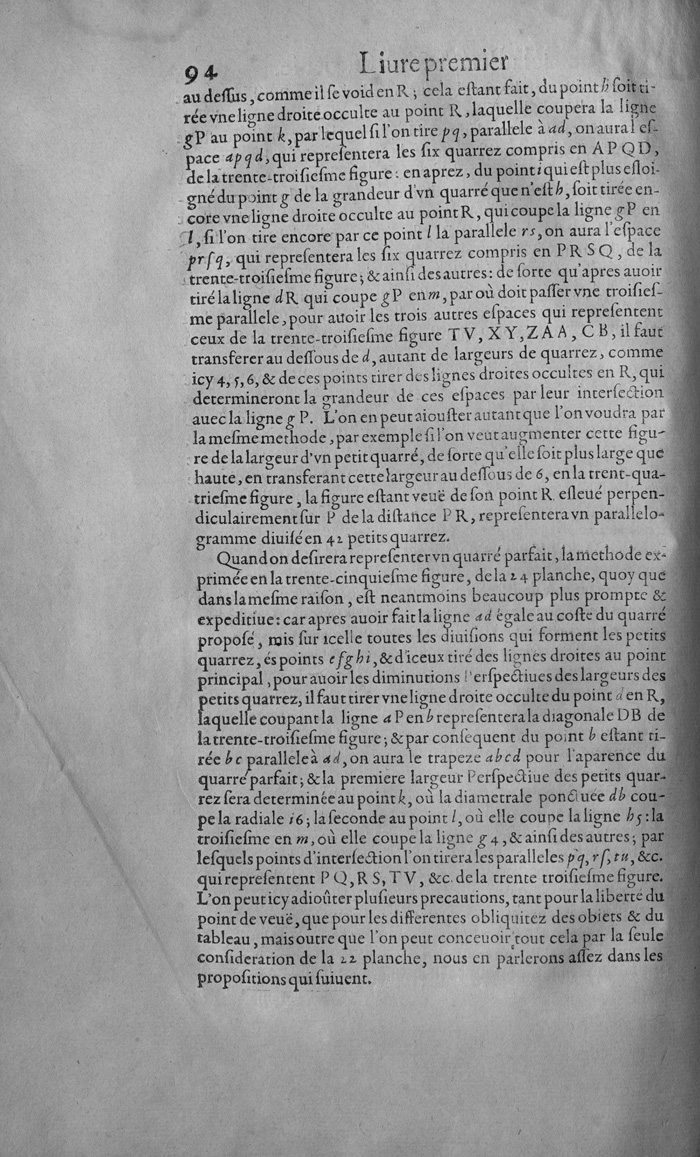 94 Liure premier
au deſſus, comme il ſe void en R; cela eſtant fait, du point h ſoit ti-
rée vne ligne droite occulte au point R, laquelle coupera la ligne
gP au point k, par lequel ſi l'on tire pq, parallele à ad, on aura l'eſ-
pace apqd, qui repreſentera les ſix quarrez compris en APQD,
de la trente-troiſieſme figure: en aprez, du point i qui eſt plus eſloi-
gné du point g de la grandeur d'vn quarré que n'eſt h, ſoit tirée en-
core vne ligne droite occulte au point R, qui coupe la ligne gP en
l, ſi l'on tire encore par ce point l la parallele rs, on aura l'eſpace
prſq, qui repreſentera les ſix quarrez compris en PRSQ, de la
trente-troiſieſme figure; & ainſi des autres: de ſorte qu'apres auoir
tiré la ligne dR qui coupe gP en m, par où doit paſſer vne troiſieſ-
me parallele, pour auoir les trois autres eſpaces qui repreſentent
ceux de la trente-troiſieſme figure TV, XY, ZAA, CB, il faut
transferer au deſſous de d, autant de largeurs de quarrez, comme
icy 4, 5, 6, & de ces points tirer des lignes droites occultes en R, qui
determineront la grandeur de ces eſpaces par leur interſection
auec la ligne g P. L'on en peut aiouſter autant que l'on voudra par
la meſme methode, par exemple ſi l'on veut augmenter cette figu-
re de la largeur d'vn petit quarré, de ſorte qu'elle ſoit plus large que
haute, en transferant cette largeur au deſſous de 6, en la trent-qua-
trieſme figure, la figure eſtant veuë de ſon point R eſleué perpen-
diculairement ſur P de la diſtance PR, repreſentera vn parallelo-
gramme diuiſé en 42 petits quarrez.
Quand on deſirera repreſenter vn quarré parfait, la methode ex-
primée en la trente-cinquieſme figure, de la 24 planche, quoy que
dans la meſme raiſon, eſt neantmoins beaucoup plus prompte &
expeditiue: car apres auoir fait la ligne ad égale au coſte du quarré
propoſé, mis ſur icelle toutes les diuiſions qui forment les petits
quarrez, és points efghi, & d'iceux tiré des lignes droites au point
principal, pour auoir les diminutions Perſpectiues des largeurs des
petits quarrez, il faut tirer vne ligne droite occulte du point d en R,
laquelle coupant la ligne aP en b repreſentera la diagonale DB de
la trente-troiſieſme figure; & par conſequent du point b eſtant ti-
rée bc parallele à ad, on aura le trapeze abcd pour l'aparence du
quarré parfait; & la premiere largeur Perſpectiue des petits quar-
rez ſera determinée au point k, où la diametrale ponctuée db cou-
pe la radiale i6; la ſeconde au point l, où elle coupe la ligne h5: la
troiſieſme en m, où elle coupe la ligne g4, & ainſi des autres; par
leſquels points d'interſection l'on tirera les paralleles pq, rſ, tu, &c.
qui repreſentent PQ, RS, TV, &c. de la trente troiſieſme figure.
L'on peut icy adioûter pluſieurs precautions, tant pour la liberté du
point de veuë, que pour les differentes obliquitez des obiets & du
tableau, mais outre que l'on peut conceuoir tout cela par la ſeule
conſideration de la 22 planche, nous en parlerons aſſez dans les
propoſitions qui ſuiuent.